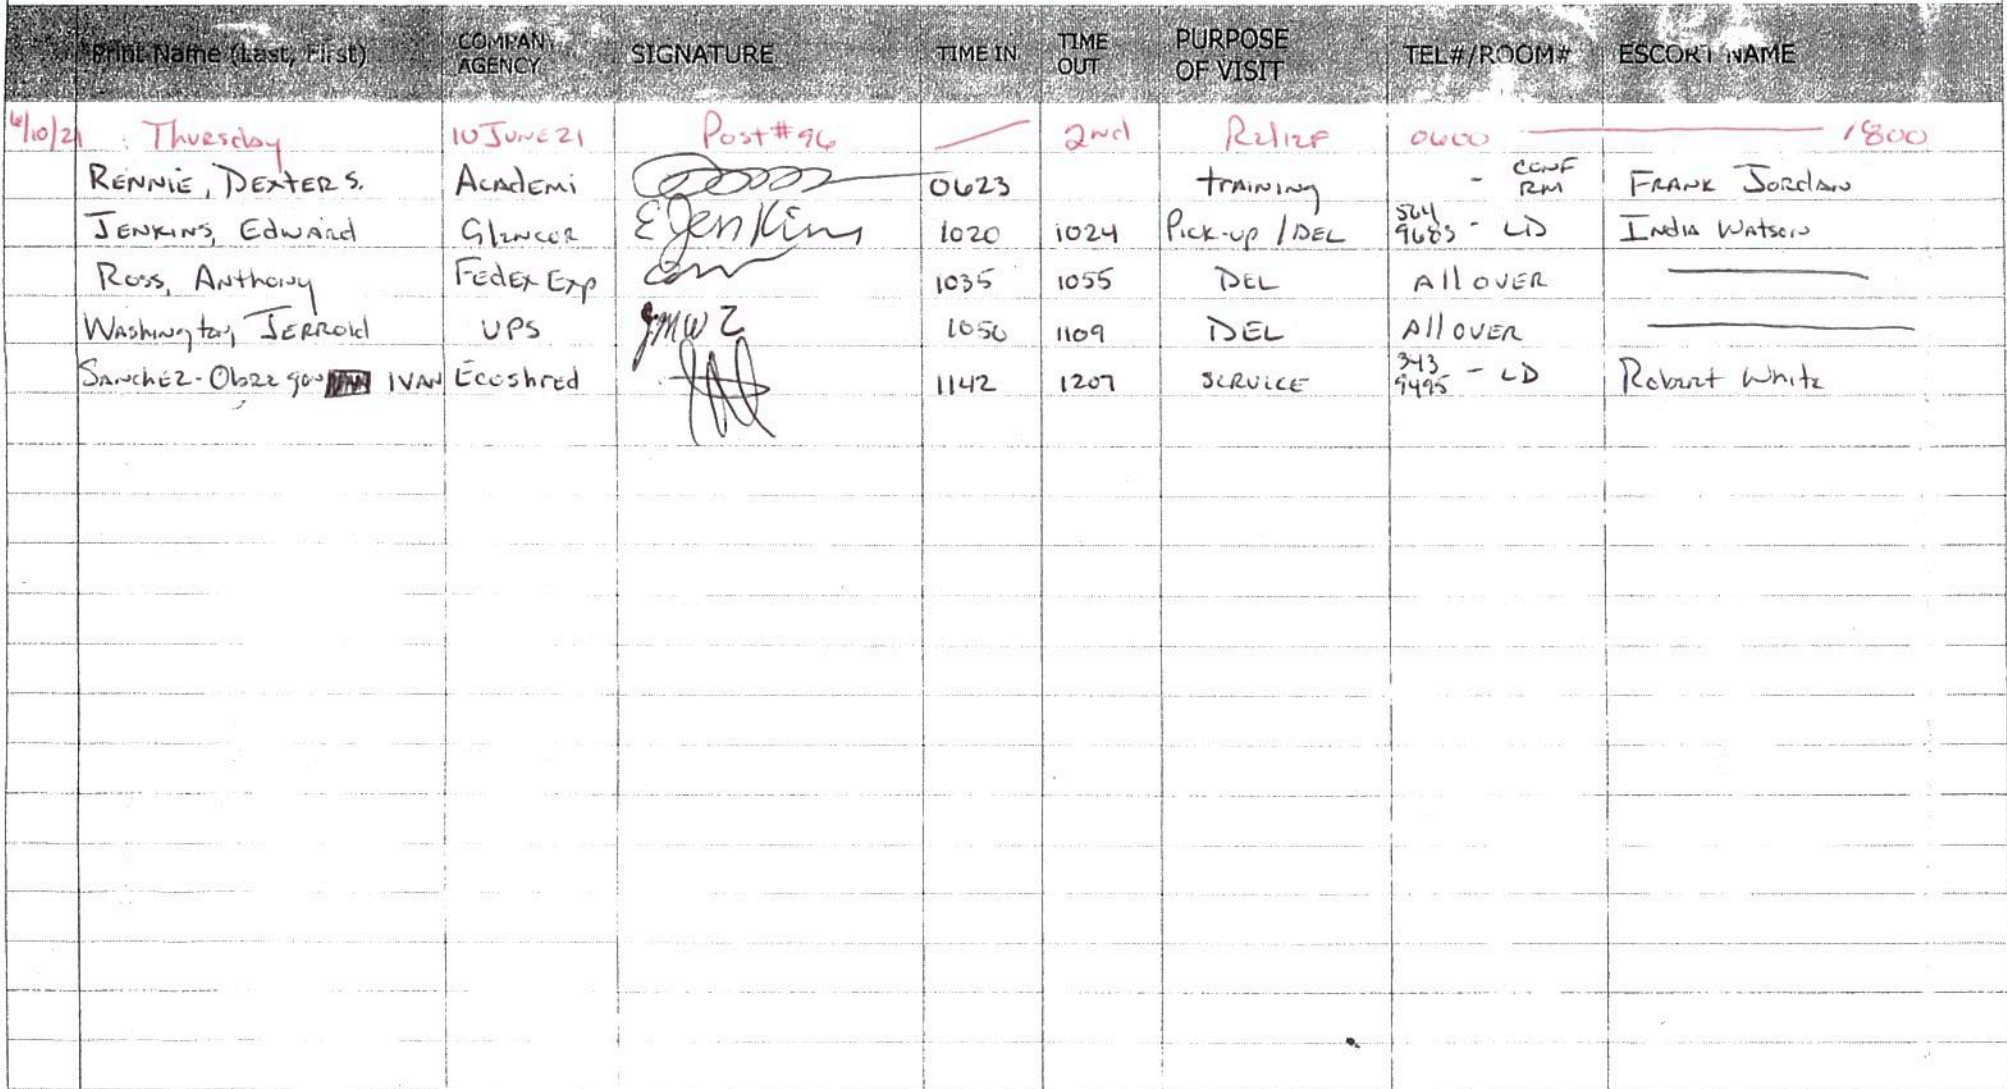 Print Name (Last, First) COMPANY AGENCY SIGNATURE TIME IN TIME OUT PURPOSE OF VISIT TEL#/ROOM# ESCORT NAME
6/10/21 Thursday 10 JUNE 21 Post #96 — 2nd Relief 0600 — 1800
RENNIE, DEXTER S. ACADEMI 0623 TRAINING - CONF RM FRANK JORDAN
JENKINS, Edward E Jenkins 1020 1024 Pick-up / DEL 9685 - LD INDIA WATSON
Ross, Anthony FedEx Exp 1035 1055 DEL All OVER —
Washington, JERROLD UPS JMWZ 1050 1109 DEL All OVER —
SANCHEZ- IVAN Ecoshred 1142 1207 SERVICE 343 9495 - LD Robert White